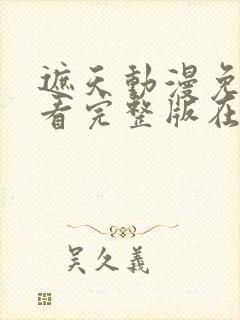 遮天動漫免
看完整版在
吴久義